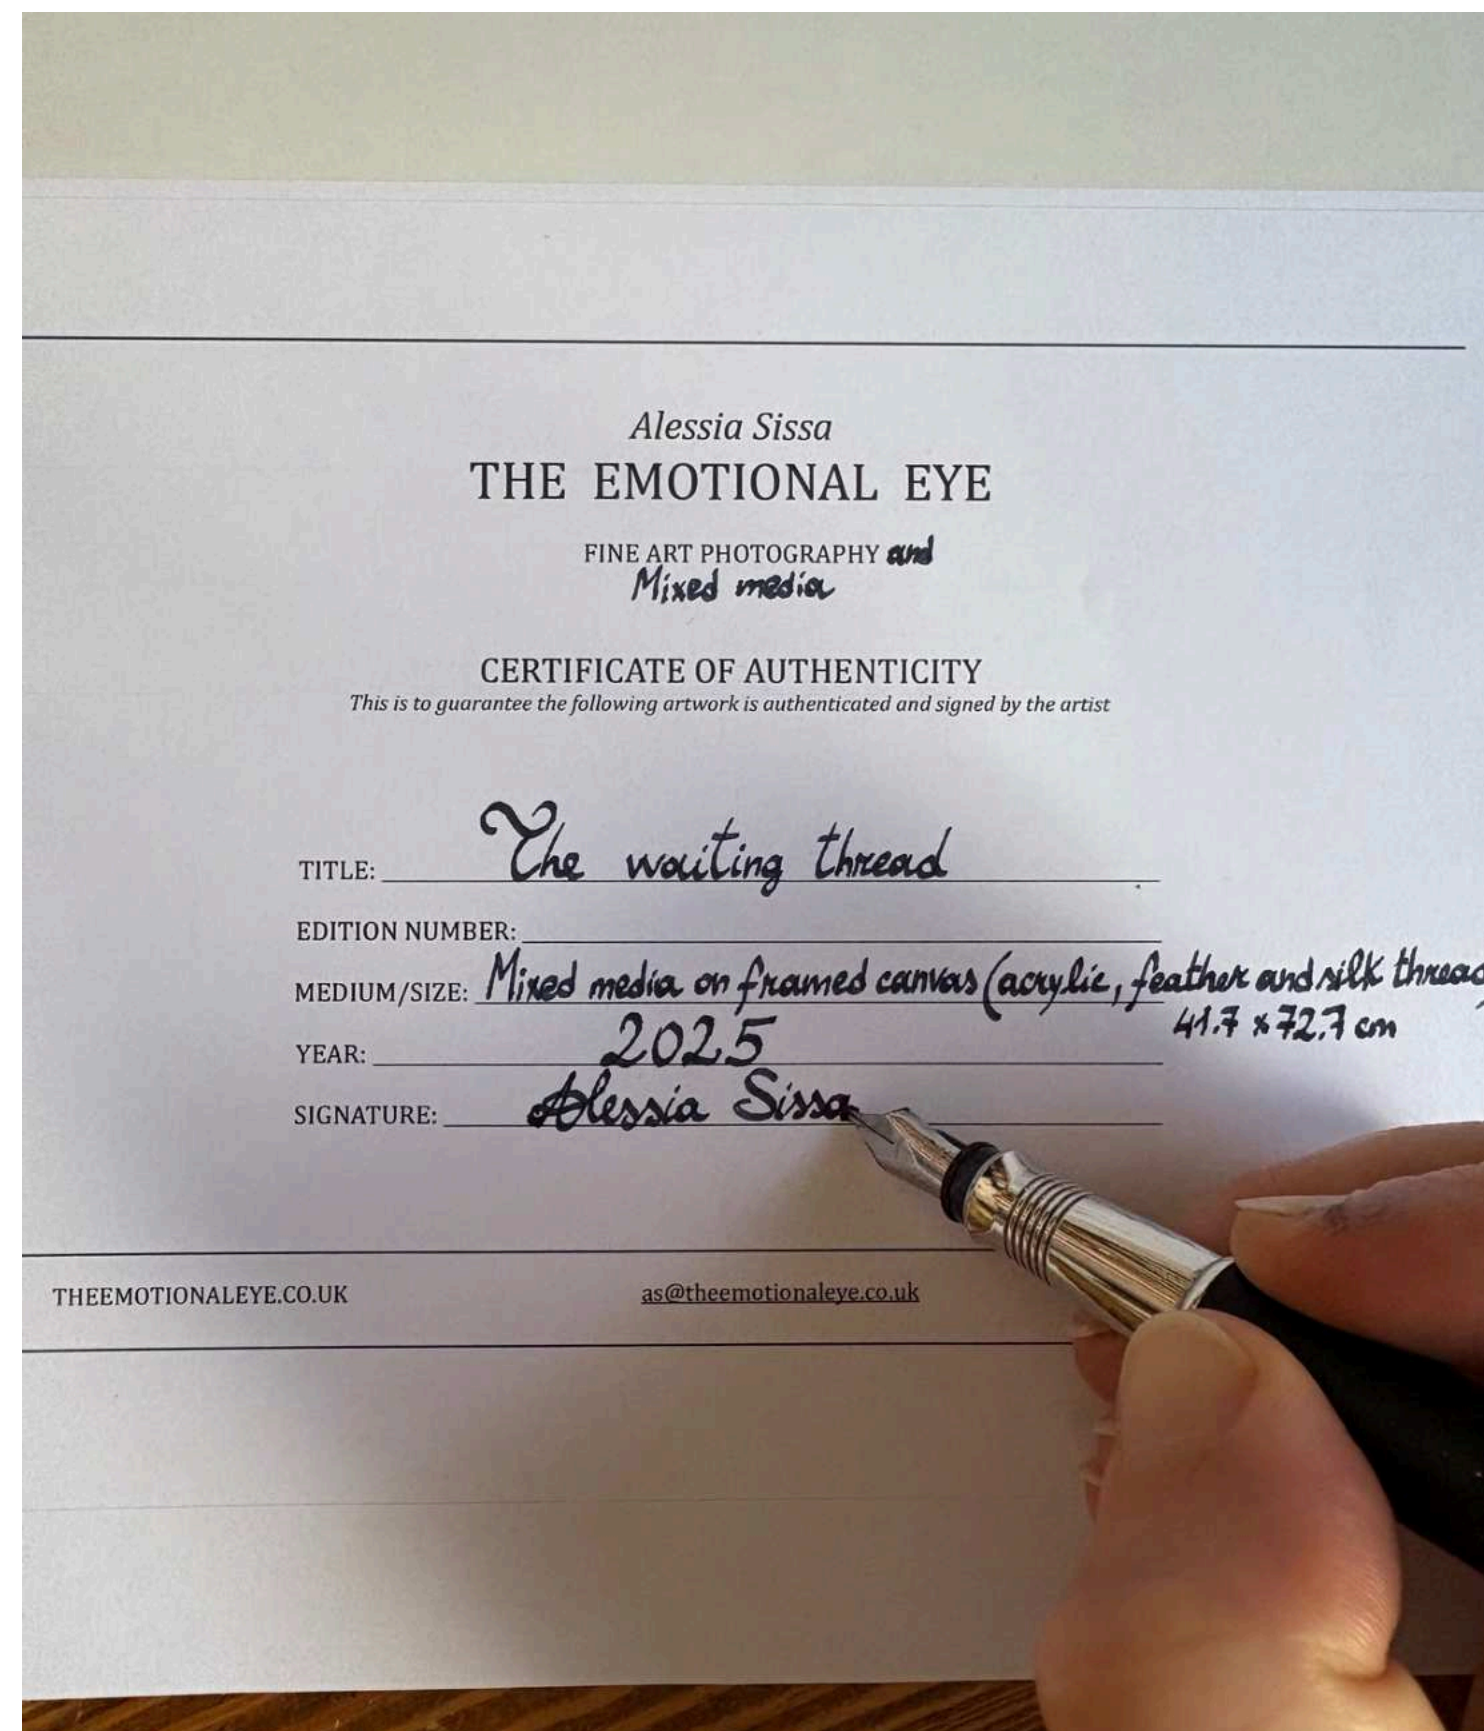 Alessia Sissa
THE EMOTIONAL EYE
FINE ART PHOTOGRAPHY and
Mixed media
CERTIFICATE OF AUTHENTICITY
This is to guarantee the following artwork is authenticated and signed by the artist
TITLE: The waiting thread
EDITION NUMBER:
MEDIUM/SIZE: Mixed media on framed canvas (acrylic, feather and silk thread)
41.7 x 72.7 cm
YEAR: 2025
SIGNATURE: Alessia Sissa
THEEMOTIONALEYE.CO.UK as@theemotionaleye.co.uk